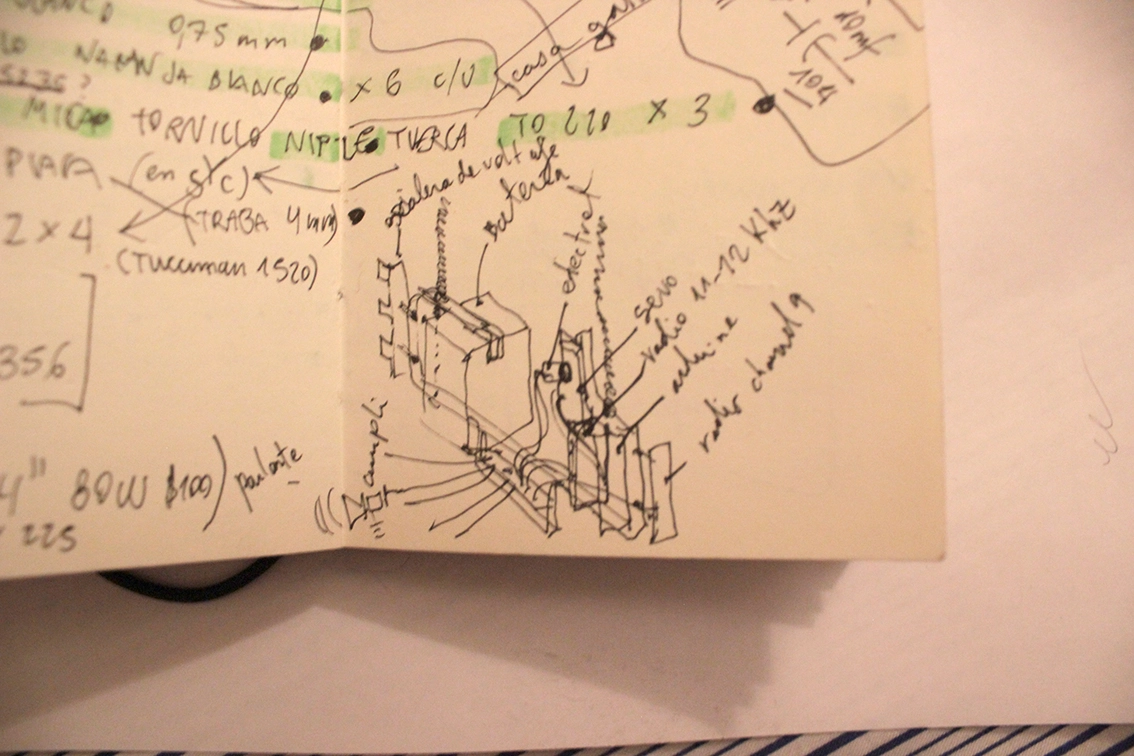 BLANCO
0,75 mm
NARANJA BLANCO x 6 c/u
5236?
MICA TORNILLO NIPLE TUERCA TO 220 x 3
(casa
10mf
104
(en s/c)
2 x 4 (TRABA 4 mm)
(Tucuman 1520)
356
4" 80W $100) parlante
225
de voltaje
Bateria
electret
servo
radio 11-12 KHz
radio channel 9
ampli